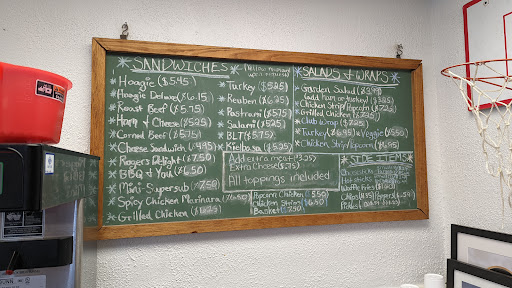 *SANDWICHES*
*Hoagie ($5.45)
*Hoagie Deluxe ($6.15)
*Roast Beef ($5.75)
*Ham & Cheese ($5.25)
*Corned Beef ($5.75)
*Cheese Sandwich ($4.95)
*Rogers Delight ($7.50)
*BBQ 4 You ($6.50)
*Mini-Supersub ($7.50)
*Spicy Chicken Marinara ($6.50)
*Grilled Chicken
*Turkey ($5.25)
*Reuben ($6.25)
*Pastrami ($5.75)
*Salami ($5.25)
*BLT ($5.75)
*Kielbasa ($5.25)
Add extra meat ($3.25)
Extra Cheese ($.75)
All toppings included
Popcorn Chicken 5.50
Chicken Strips 6.50
Basket 7.50
*SALADS & WRAPS*
*Garden Salad
*Chicken Strip/Popcorn ($7.25)
*Grilled Chicken ($7.25)
*Club Wrap ($7.25)
*Turkey ($6.95) *Veggie ($5.50)
*Chicken Strip/Popcorn ($6.95)
*SIDE ITEMS*
Waffle Fries
Chips
Pickles